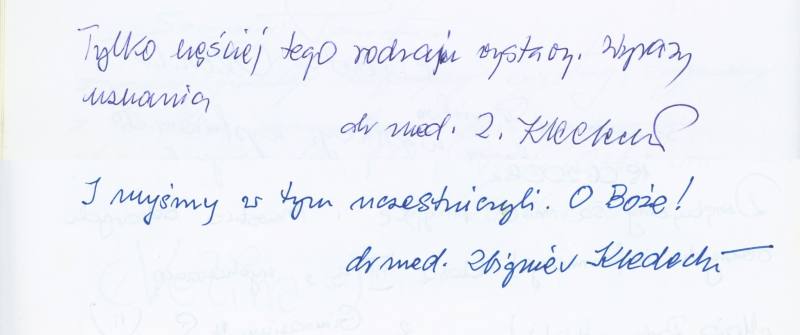 Tylko częściej tego rodzaju wystawy. Wyrazy
uznania
dr med. Z.
I myśmy w tym uczestniczyli. O Boże!
dr med. Zbigniew Kledecki